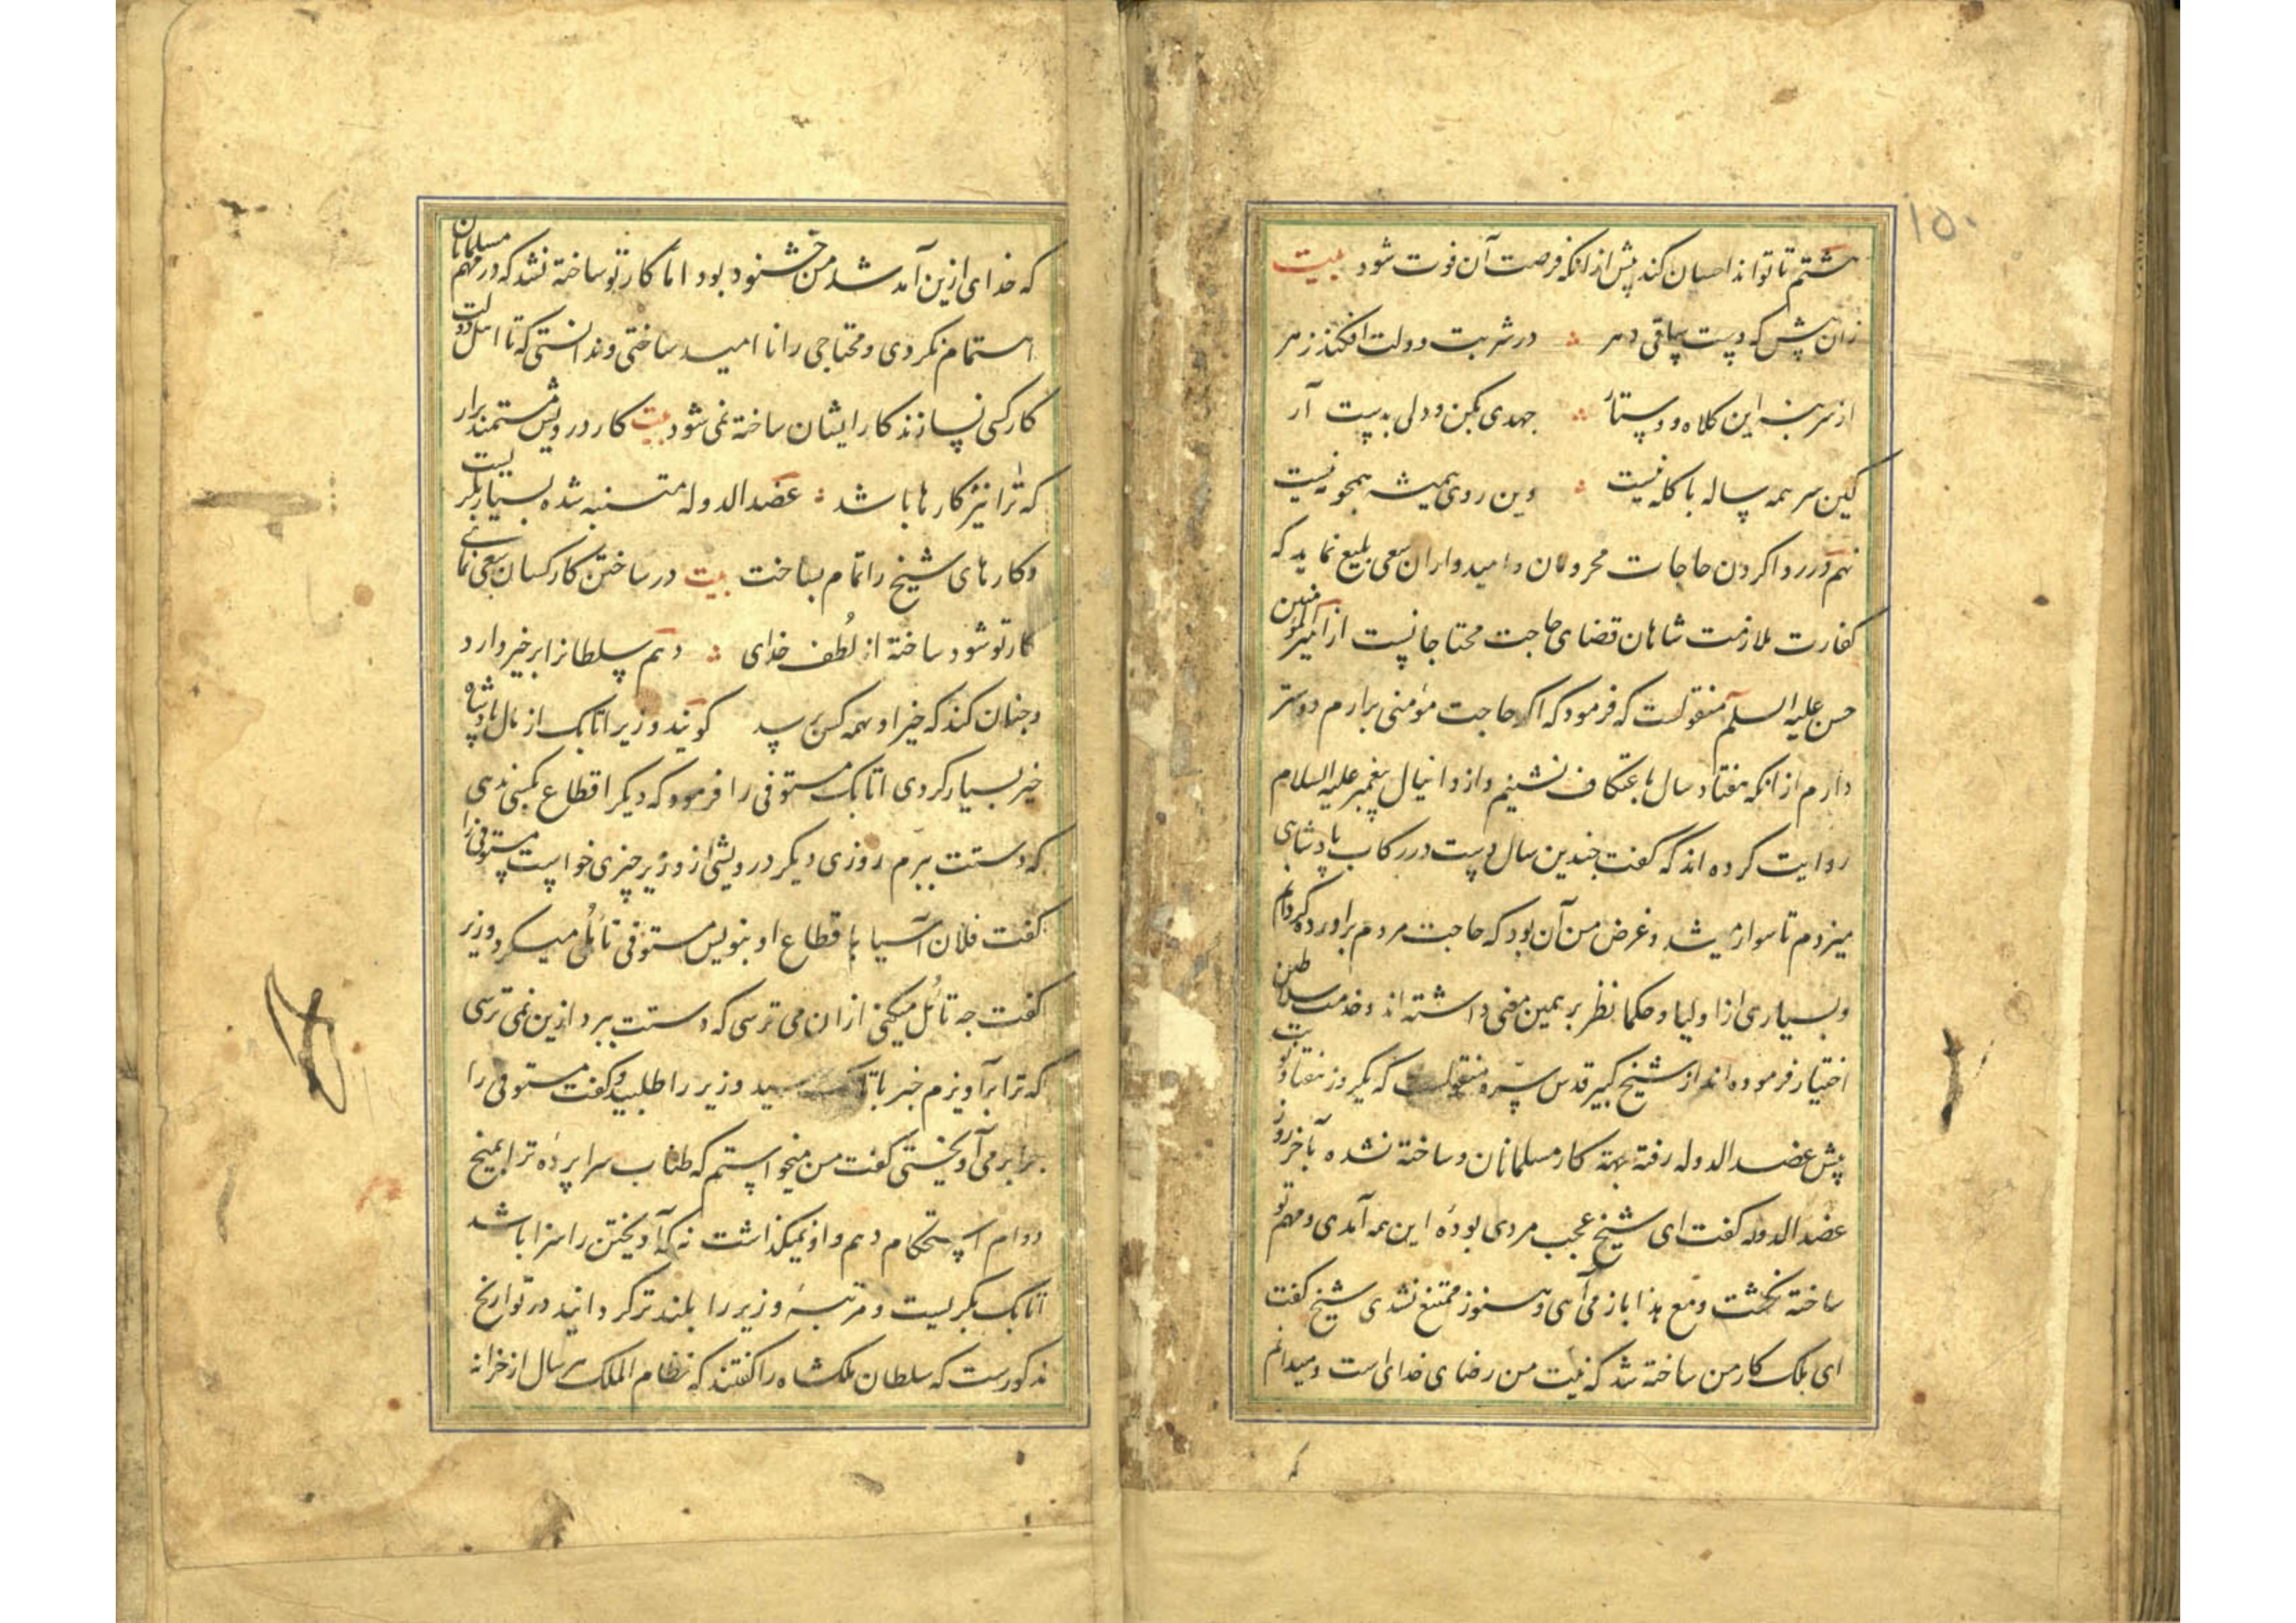 ۱۵۰
هشتم تا تواند احسان کند پیش از انکه فرصت آن فوت شود بیت
زان پیش که دست ساقی دهر در شربت دولت افکند زهر
از سر بنه این کلاه و دستار جهدی بکن و دلی بدست آر
کین سر همه ساله با کله نیست وین روی همیشه همچو مه نیست
نهم در روا کردن حاجات محرومان و امیدواران سعی بلیغ نماید که
کفارت ملازمت شاهان قضای حاجت محتاجانست از امیر المؤمنین
حسن علیه السلم منقولست که فرمود که اکر حاجت مؤمنی برارم دوستر
دارم از انکه هفتاد سال باعتکاف نشینم و از دانیال پیغمبر علیه السلام
روایت کرده اند که کفت چندین سال دست در رکاب پادشاهی
میزدم تا سوار میشد و غرض من آن بود که حاجت مردم براورده کردانم
و بسیاری از اولیا و حکما نظر بر همین معنی داشته اند و خدمت سلاطین
اختیار فرموده اند از شیخ کبیر قدس سره منقولست که یکروز هفتاد نوبت
پیش عضد الدوله رفته بجهة کار مسلمانان و ساخته نشده بآخر روز
عضد الدوله کفت ای شیخ عجب مردی بودهٔ این همه آمدی و مهم تو
ساخته نکشت و مع هذا باز می آیی و هنوز ممتنع نشدی شیخ کفت
ای ملک کار من ساخته شد که نیت من رضای خدای است و میدانم
که
که خدای ازین آمد شد من خشنود بود اما کار تو ساخته نشد که در مهم مسلمانان
اهتمام نکردی و محتاجی را نا امید ساختی و ندانستی که تا اهل دولت
کار کسی نسازند کار ایشان ساخته نمی شود بیت کار درویش مستمند برار
که ترا نیز کارها باشد عضد الدوله متنبه شده بسیار بکریست
و کارهای شیخ را تمام بساخت بیت در ساختن کار کسان سعی نمای
کار تو شود ساخته از لُطف خدای دهم سلطانرا بر خیر دارد
و چنان کند که خیر او بهمه کس برسد کویند وزیر اتابک از مال پادشاه
خیر بسیار کردی اتابک مستوفی را فرمود که دیکر اقطاع بکسی ندهی
که دستت ببرم روزی دیکر درویشی از وزیر چیزی خواست مستوفی را
کفت فلان آسیا باقطاع او بنویس مستوفی تأمُّل میکرد وزیر
کفت چه تأمُل میکنی ازان می ترسی که دستت ببرد ازین نمی ترسی
که ترا برآویزم خبر باتابک رسید وزیر را طلبید و کفت مستوفی را
چرا برمی آویختی کفت من میخواستم که طناب سراپردهٔ ترا بمیخ
دوام استحکام دهم و او نمیکذاشت نه که آویختن را سزا باشد
اتابک بکریست و مرتبهٔ وزیر را بلندتر کردانید در تواریخ
مذکورست که سلطان ملکشاه را کفتند که نظام الملک هر سال از خزانه